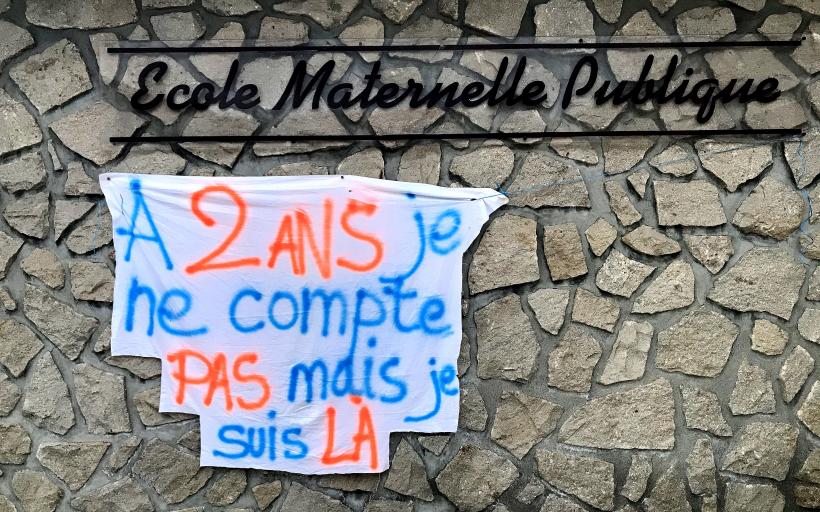 Ecole Maternelle Publique
À 2 ANS je
ne compte
PAS mais je
suis LÀ